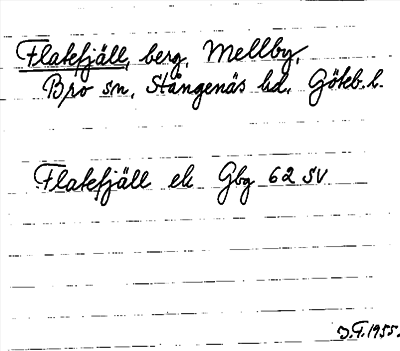 Flatefjäll, berg, Mellby,
Bro sn, Stångenäs hd, Göteb. l.
Flatefjäll ek Gbg 62 SV
D.F. 1955.